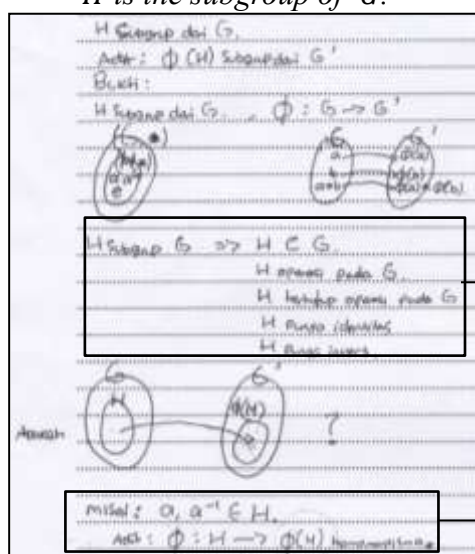 H is the subgroup of G.
H Subgrup dari G.
Adit: ϕ(H) Subgrup dari G'
Bukti:
H Subgrup dari G. , ϕ: G -> G'
G G'
a ϕ(a)
H Subgrup G => H ⊂ G.
H operasi pada G.
H tertutup operasi pada G
H punya identitas
H punya invers
G G'
H ϕ(H)
Apakah ?
misal: a, a⁻¹ ∈ H.
Adit: ϕ: H -> ϕ(H)